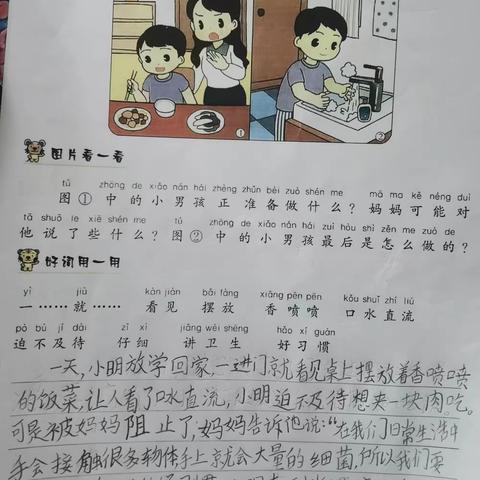 ①
②
图片看一看
tú zhōng de xiǎo nán hái zhèng zhǔn bèi zuò shén me mā ma kě néng duì
图①中的小男孩正准备做什么？妈妈可能对
tā shuō le xiē shén me tú zhōng de xiǎo nán hái zuì hòu shì zěn me zuò de
他说了些什么？图②中的小男孩最后是怎么做的？
好词用一用
yī jiù kàn jiàn bǎi fàng xiāng pēn pēn kǒu shuǐ zhí liú
一……就…… 看见 摆放 香喷喷 口水直流
pò bù jí dài zǐ xì jiǎng wèi shēng hǎo xí guàn
迫不及待 仔细 讲卫生 好习惯
一天，小明放学回家，一进门就看见桌上摆放着香喷喷
的饭菜，让人看了口水直流，小明迫不及待想夹一块肉吃。
可是被妈妈阻止了，妈妈告诉他说：“在我们日常生活中
手会接触很多物体，手上就会大量的细菌，所以我们要